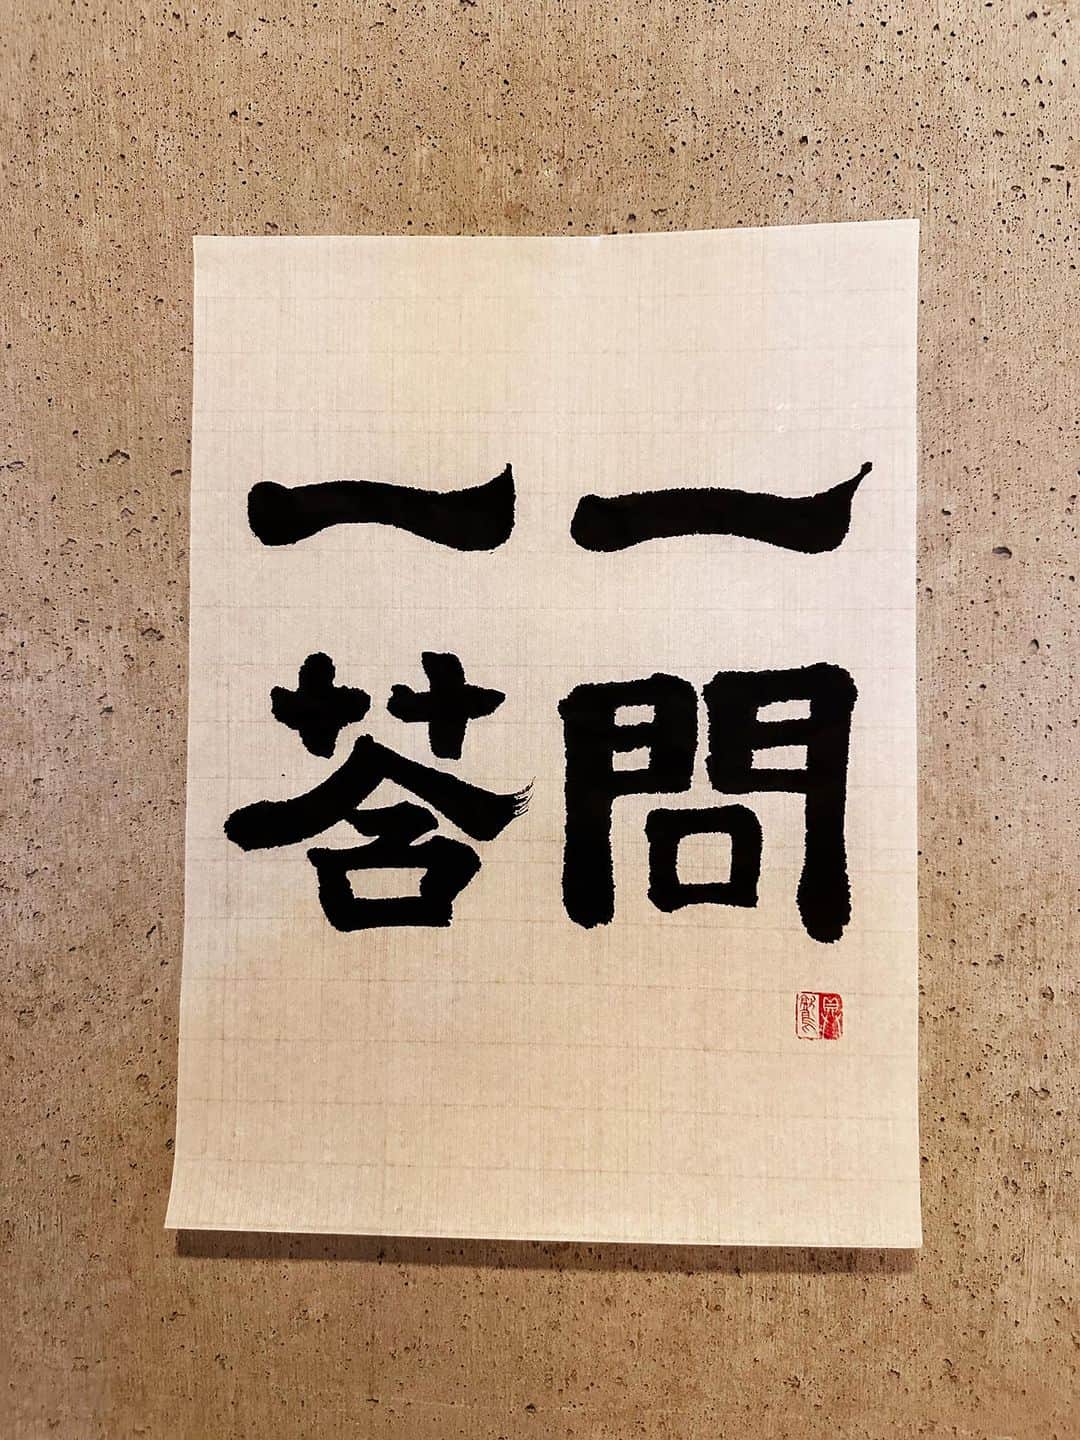 一問
一荅